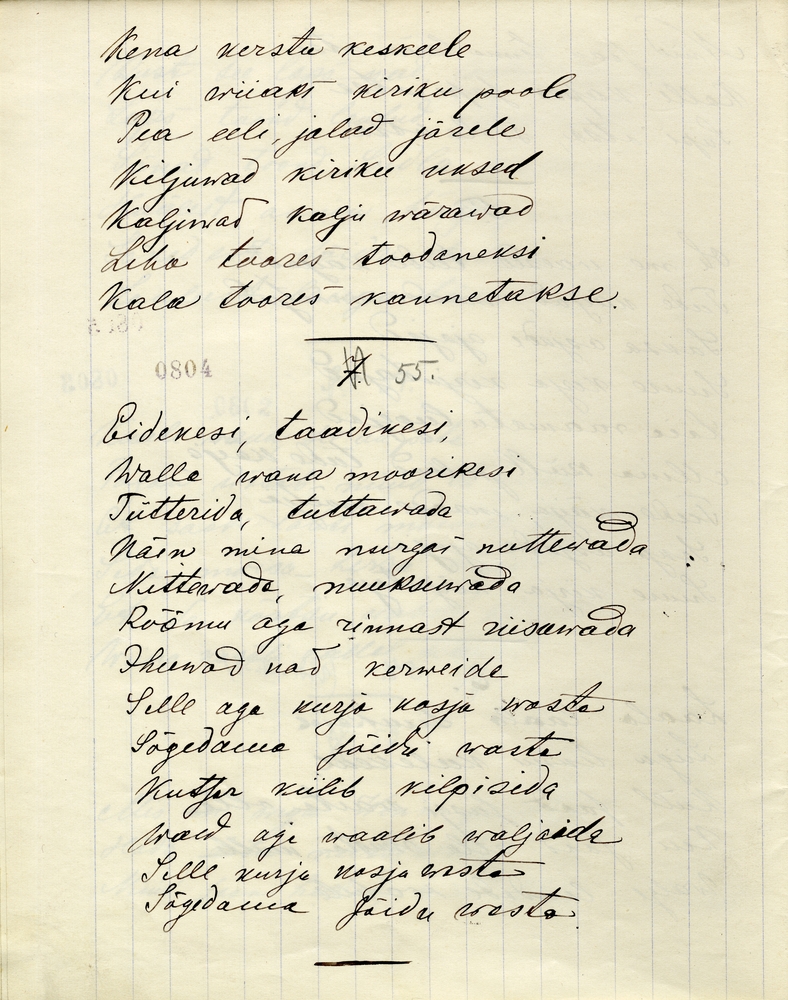 Kena kerstu keskeele
Kui wiiaks kiriku poole
Pea eeli, jalad järele
Kiljuwad kiriku uksed
Kaljuwad kalju wärawad
Liha toores toodaneksi
Kala toores kannetakse.
0804 55.
Eidekesi, taadikesi,
Walla wana moorikesi
Tütterida, tuttawada
Näen mina nurgas nuttewada
Nuttewada, nuuksuwada
Rõõmu aga rinnast riisuwada
Ihuwad nad kerweida
Selle aga kurja kosja wasta
Sõgedama sõidu wasta
Kutsar külib kilpisida
waid aga waalib waljaida
Selle kurja kosja wasta
Sõgedama sõidu wasta.